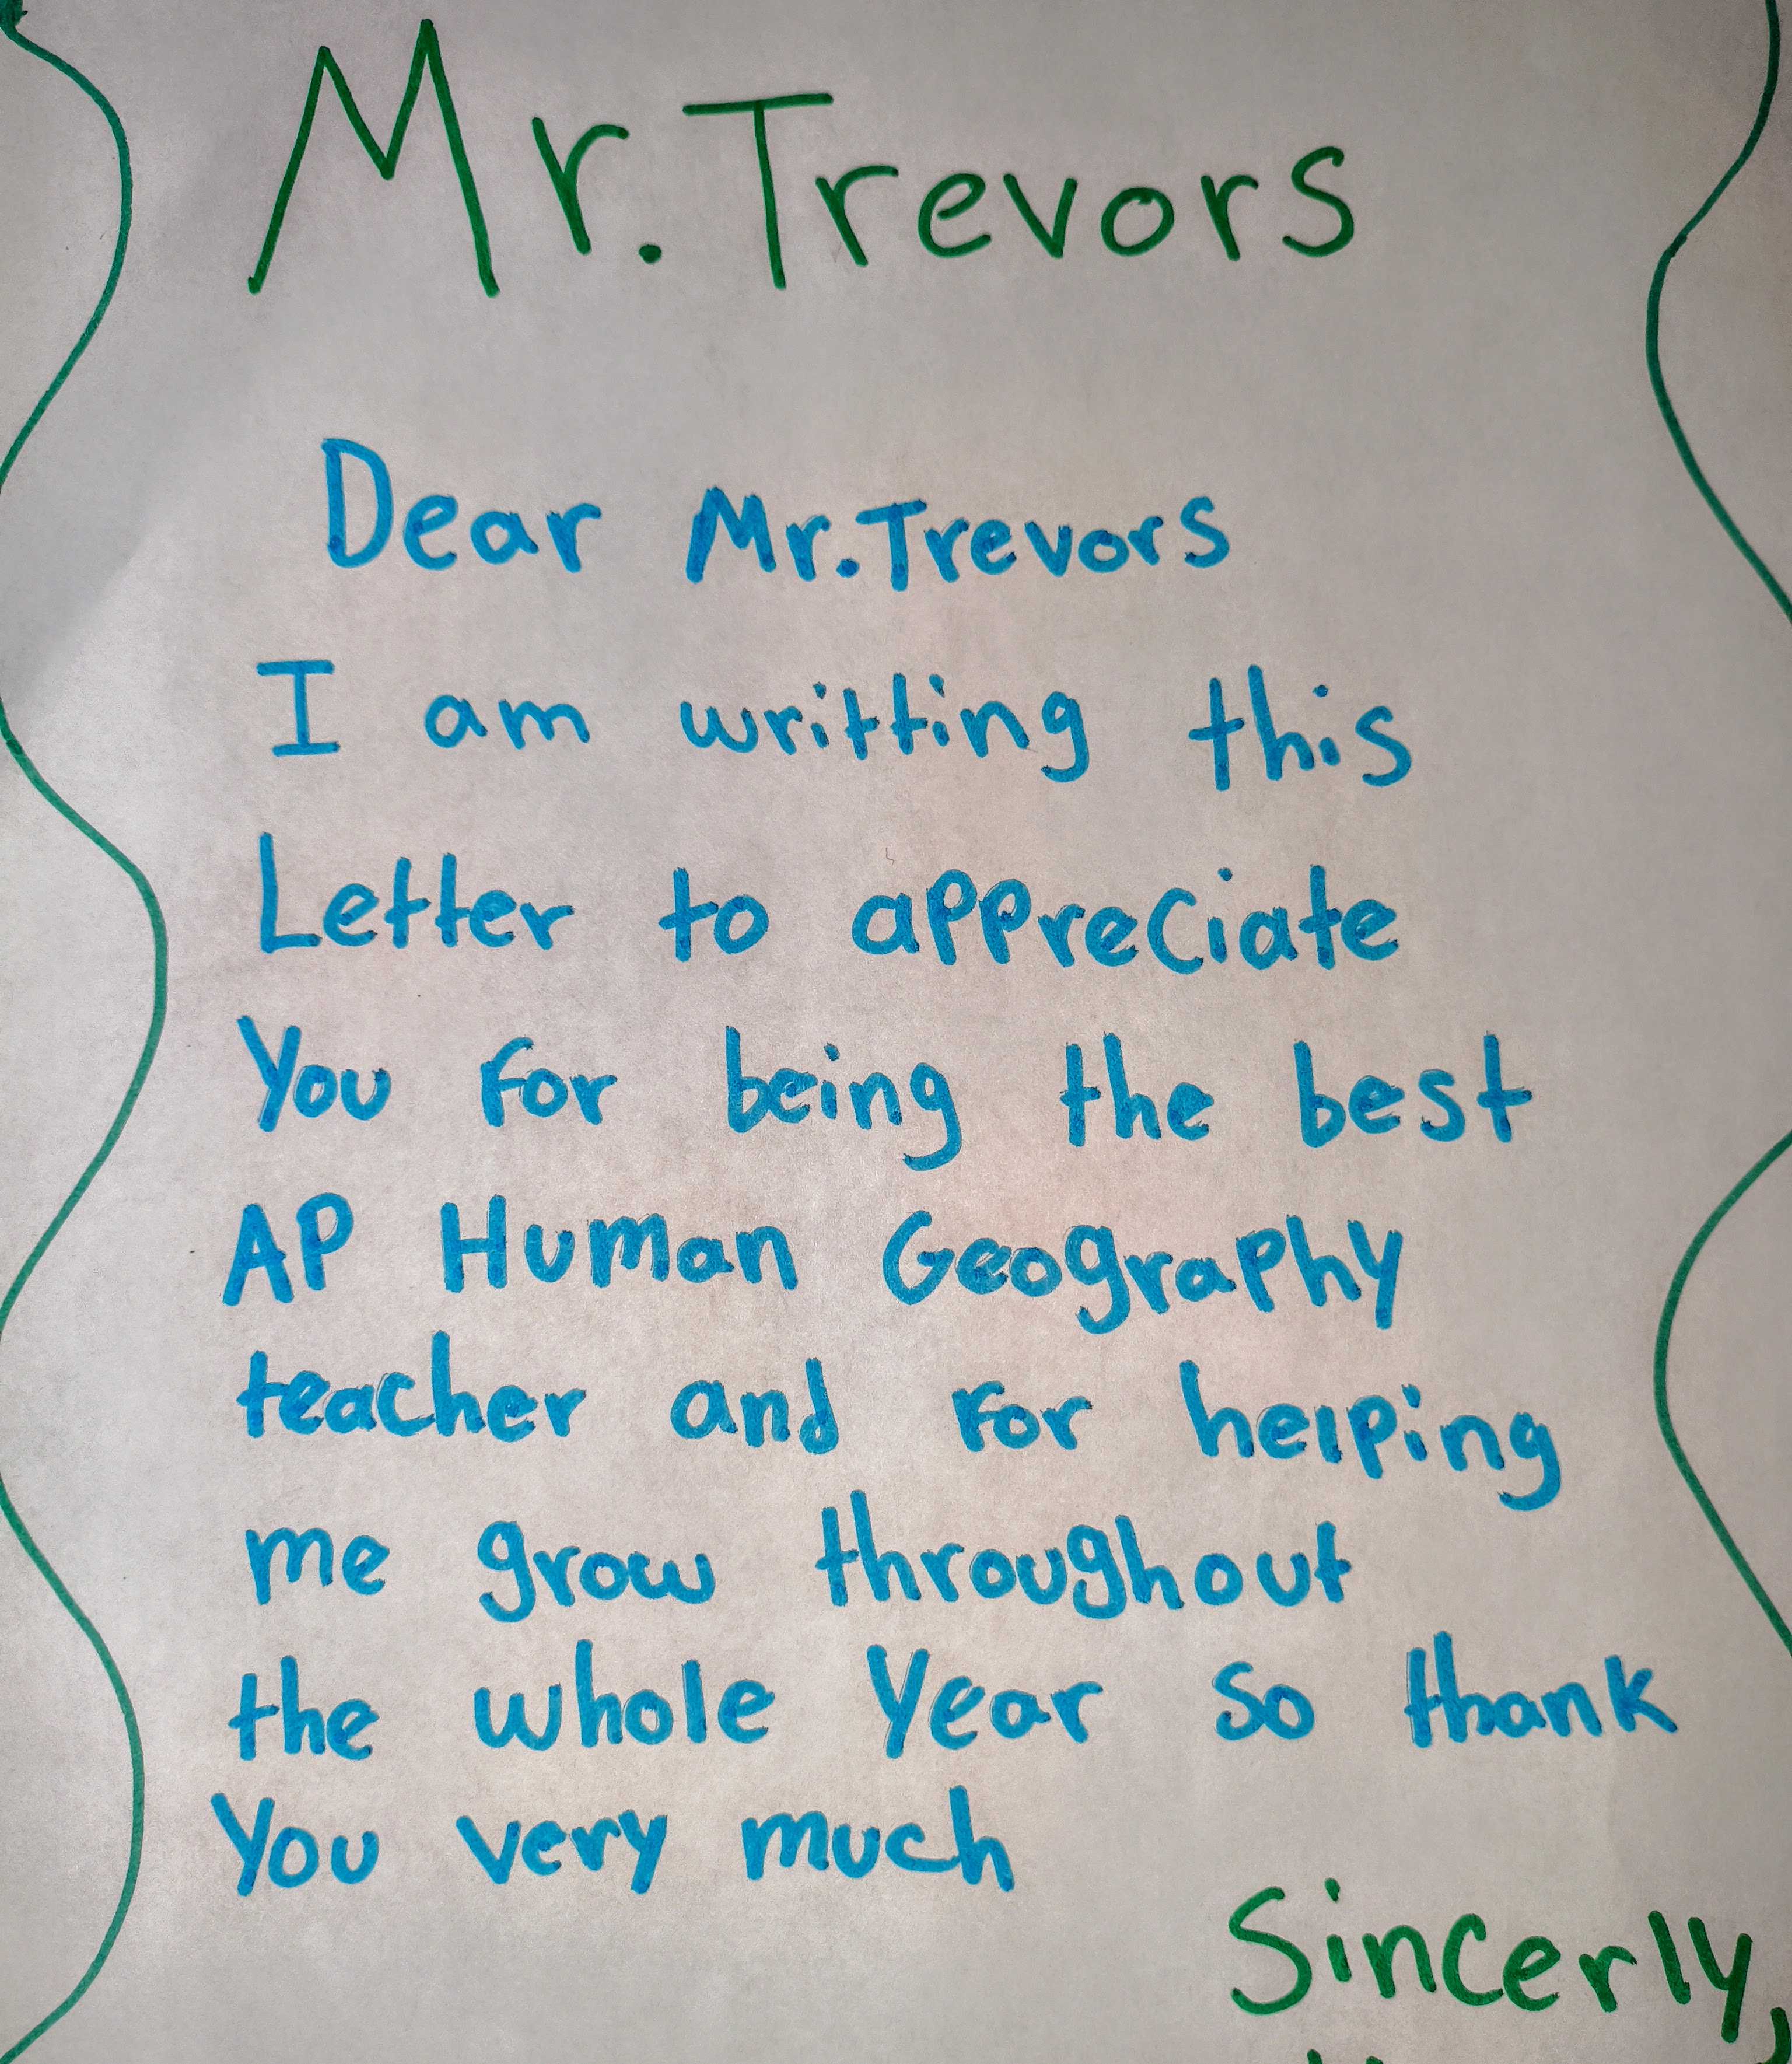 Mr. Trevors
Dear Mr. Trevors
I am writting this
Letter to appreciate
You for being the best
AP Human Geography
teacher and for helping
me grow throughout
the whole Year so thank
You very much
Sincerly,